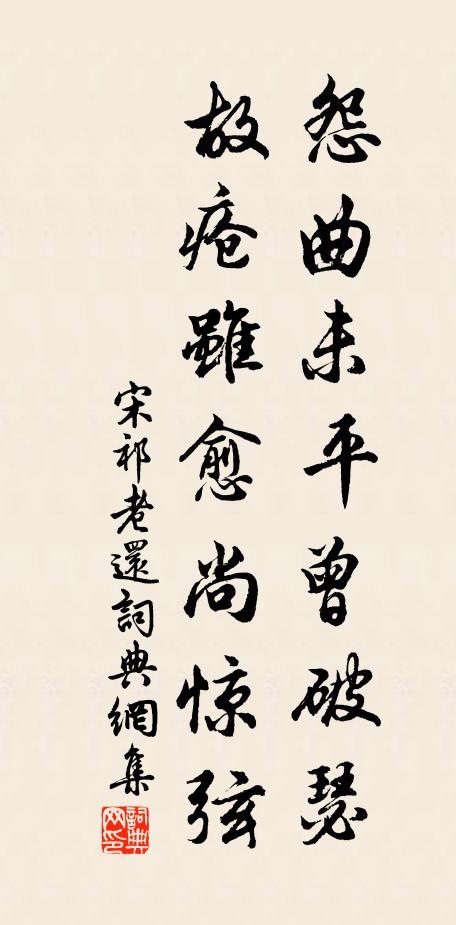 怨曲未平曾破瑟
故瘡雖愈尚惊弦
宋祁老還詞典網集
詞典网印